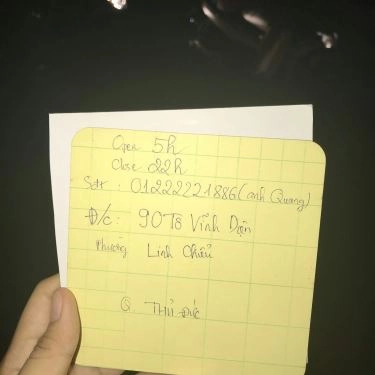 Open 5h
Close 22h
Sđt : 01222221886 (anh Quang)
Đ/c: 90T8 Vĩnh Dện
Phường Linh Chiểu
Q THỦ ĐỨC